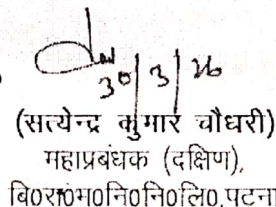 30/3/26
(सत्येन्द्र कुमार चौधरी)
महाप्रबंधक (दक्षिण),
बि०रा०भ०नि०नि०लि०,पटना